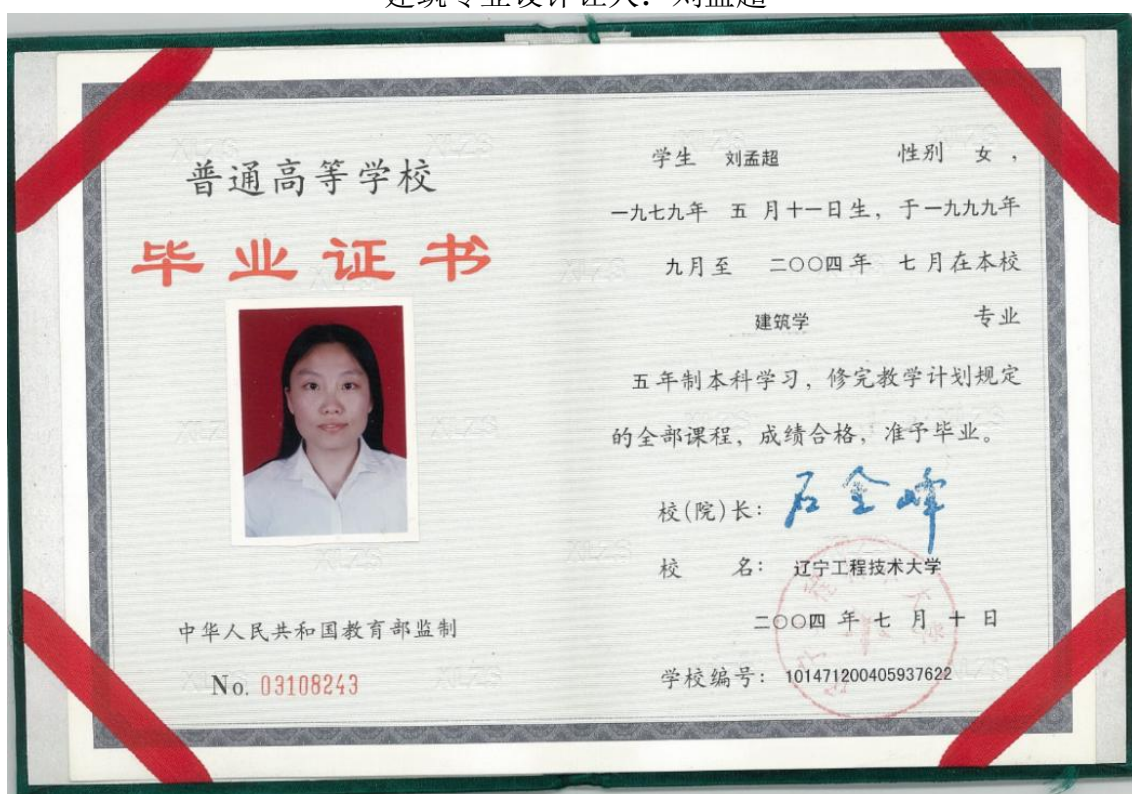 建筑专业设计证人：刘孟超
普通高等学校
毕业证书
中华人民共和国教育部监制
No. 03108243
学生 刘孟超 性别 女，
一九七九年 五 月十一日生，于一九九九年
九月至 二〇〇四年 七月在本校
建筑学 专业
五年制本科学习，修完教学计划规定
的全部课程，成绩合格，准予毕业。
校(院)长：石金峰
校 名：辽宁工程技术大学
二〇〇四 年 七 月 十 日
学校编号：101471200405937622
XLZS